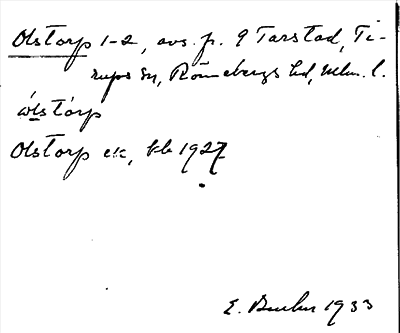 Olstorp 1-2, avs. fr. 9 Tarstad, Ti-
rups sn, Rönnebergs hd, Mlm. l.
ὼlstórp
Olstorp ek, kb 1927
E. 1933